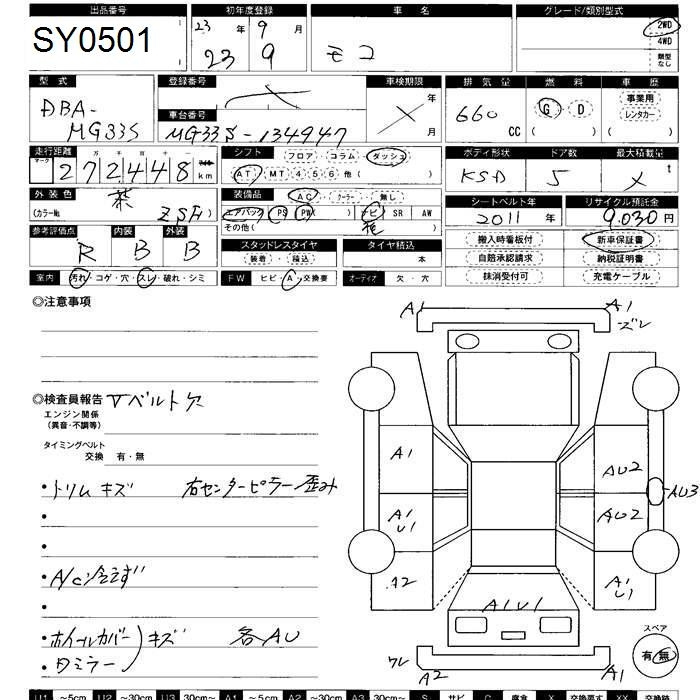 出品番号 初年度登録 車名 グレード/類別型式
SY0501 23年 9月 モコ 2WD
23 9 4WD
類型なし
型式 登録番号 車検期限 排気量 燃料 車歴
DBA- 年 660 CC G D 事業用
MG33S 車台番号 月 ( ) レンタカー
MG33S-134947 ( )
走行距離 シフト フロア・コラム・ダッシュ ボディ形状 ドア数 最大積載量
マーク 十万 万 千 百 十
272448 km AT MT 4 5 6 他( ) 5 t
外装色 茶 装備品 AC・クーラー・無し シートベルト年 リサイクル預託金
(カラーNo. ) エアバック PS PW( ) ナビ SR AW 2011年 9,030円
その他( )
参考評価点 内装 外装 スタッドレスタイヤ タイヤ積込 搬入時看板付 新車保証書
R B B 装着・積込 本 自賠承認請求 納税証明書
室内 汚れ・コゲ・穴・スレ・破れ・シミ FW ヒビ・A・交換要 オーディオ 欠・穴 抹消受付可 充電ケーブル
◎注意事項
A1 A1
ズレ
◎検査員報告 Vベルト欠
エンジン関係
(異音・不調等)
タイミングベルト
交換 有・無
A1 AU2
・トリムキズ 右センターピラー歪み
AU3
A1 U1 AU2
・A/C冷えず
A2 A1 U1
A1 U1
・ホイールカバー キズ 各AU
・Dミラー
スペア
有・無
ワレ
A2 A1
U1 ~5cm U2 ~30cm U3 30cm~ A1 ~5cm A2 ~30cm A3 30cm~ S サビ C 腐食 X 交換要す XX 交換跡